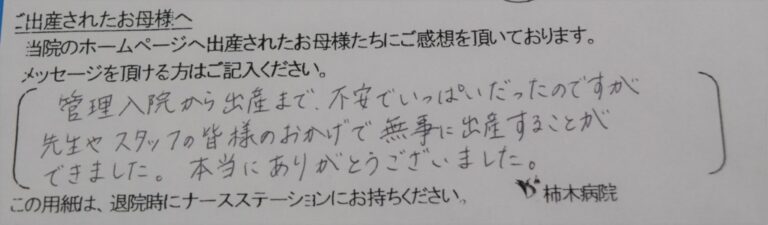 ご出産されたお母様へ
当院のホームページへ出産されたお母様たちにご感想を頂いております。
メッセージを頂ける方はご記入ください。
管理入院から出産まで、不安でいっぱいだったのですが
先生やスタッフの皆様のおかげで無事に出産することが
できました。本当にありがとうございました。
この用紙は、退院時にナースステーションにお持ちください。 柿木病院